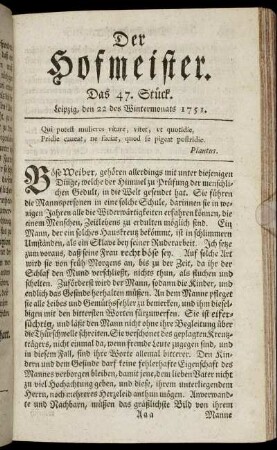 Der
Hofmeister.
Das 47. Stück.
Leipzig, den 22 des Wintermonats 1751.
Qui potest mulieres vitare, vitet, ut quotidie,
Pridie caveat, ne faciat, quod se pigeat postridie.
Plautus.
Böse Weiber, gehören allerdings mit unter diejenigen
Dinge, welche der Himmel zur Prüfung der menschli-
chen Gedult, in die Welt gesendet hat. Sie führen
die Mannspersonen in eine solche Schule, darinnen sie in we-
nigen Jahren alle die Widerwärtigkeiten erfahren können, die
die armen Menschen, Zeitlebens zu erdulten möglich sind. Ein
Mann, der ein solches Hauskreutz bekömmt, ist in schlimmern
Umständen, als ein Sklave bey seiner Ruderarbeit. Ich setze
zum voraus, daß seine Frau recht böse sey. Auf solche Art
wird sie von früh Morgens an, bis zu der Zeit, da ihr der
Schlaf den Mund verschließt, nichts thun, als fluchen und
schelten. Zuförderst wird der Mann, sodann die Kinder, und
endlich das Gesinde herhalten müssen. An dem Manne pflegt sie
sie alle Leibes und Gemüthsfehler zu bemerken, und ihm diesel-
bigen mit den bittersten Worten fürzuwerfen. Sie ist eifer-
süchtig, und läßt den Mann nicht ohne ihre Begleitung über
die Thürschwelle schreiten. Sie verschonet des geplagten Kreutz-
trägers, nicht einmal da, wenn fremde Leute zugegen sind, und
in diesem Fall, sind ihre Worte allemal bitterer. Den Kin-
dern und dem Gesinde darf keine fehlerhafte Eigenschaft des
Mannes verborgen bleiben, damit jene, den lieben Vater nicht
zu viel Hochachtung geben, und diese, ihrem unterliegendem
Herrn, noch mehreres Herzeleid anthun mögen. Anverwand-
te und Nachbarn, müssen das gräßlichste Bild von ihrem
Aaa Manne